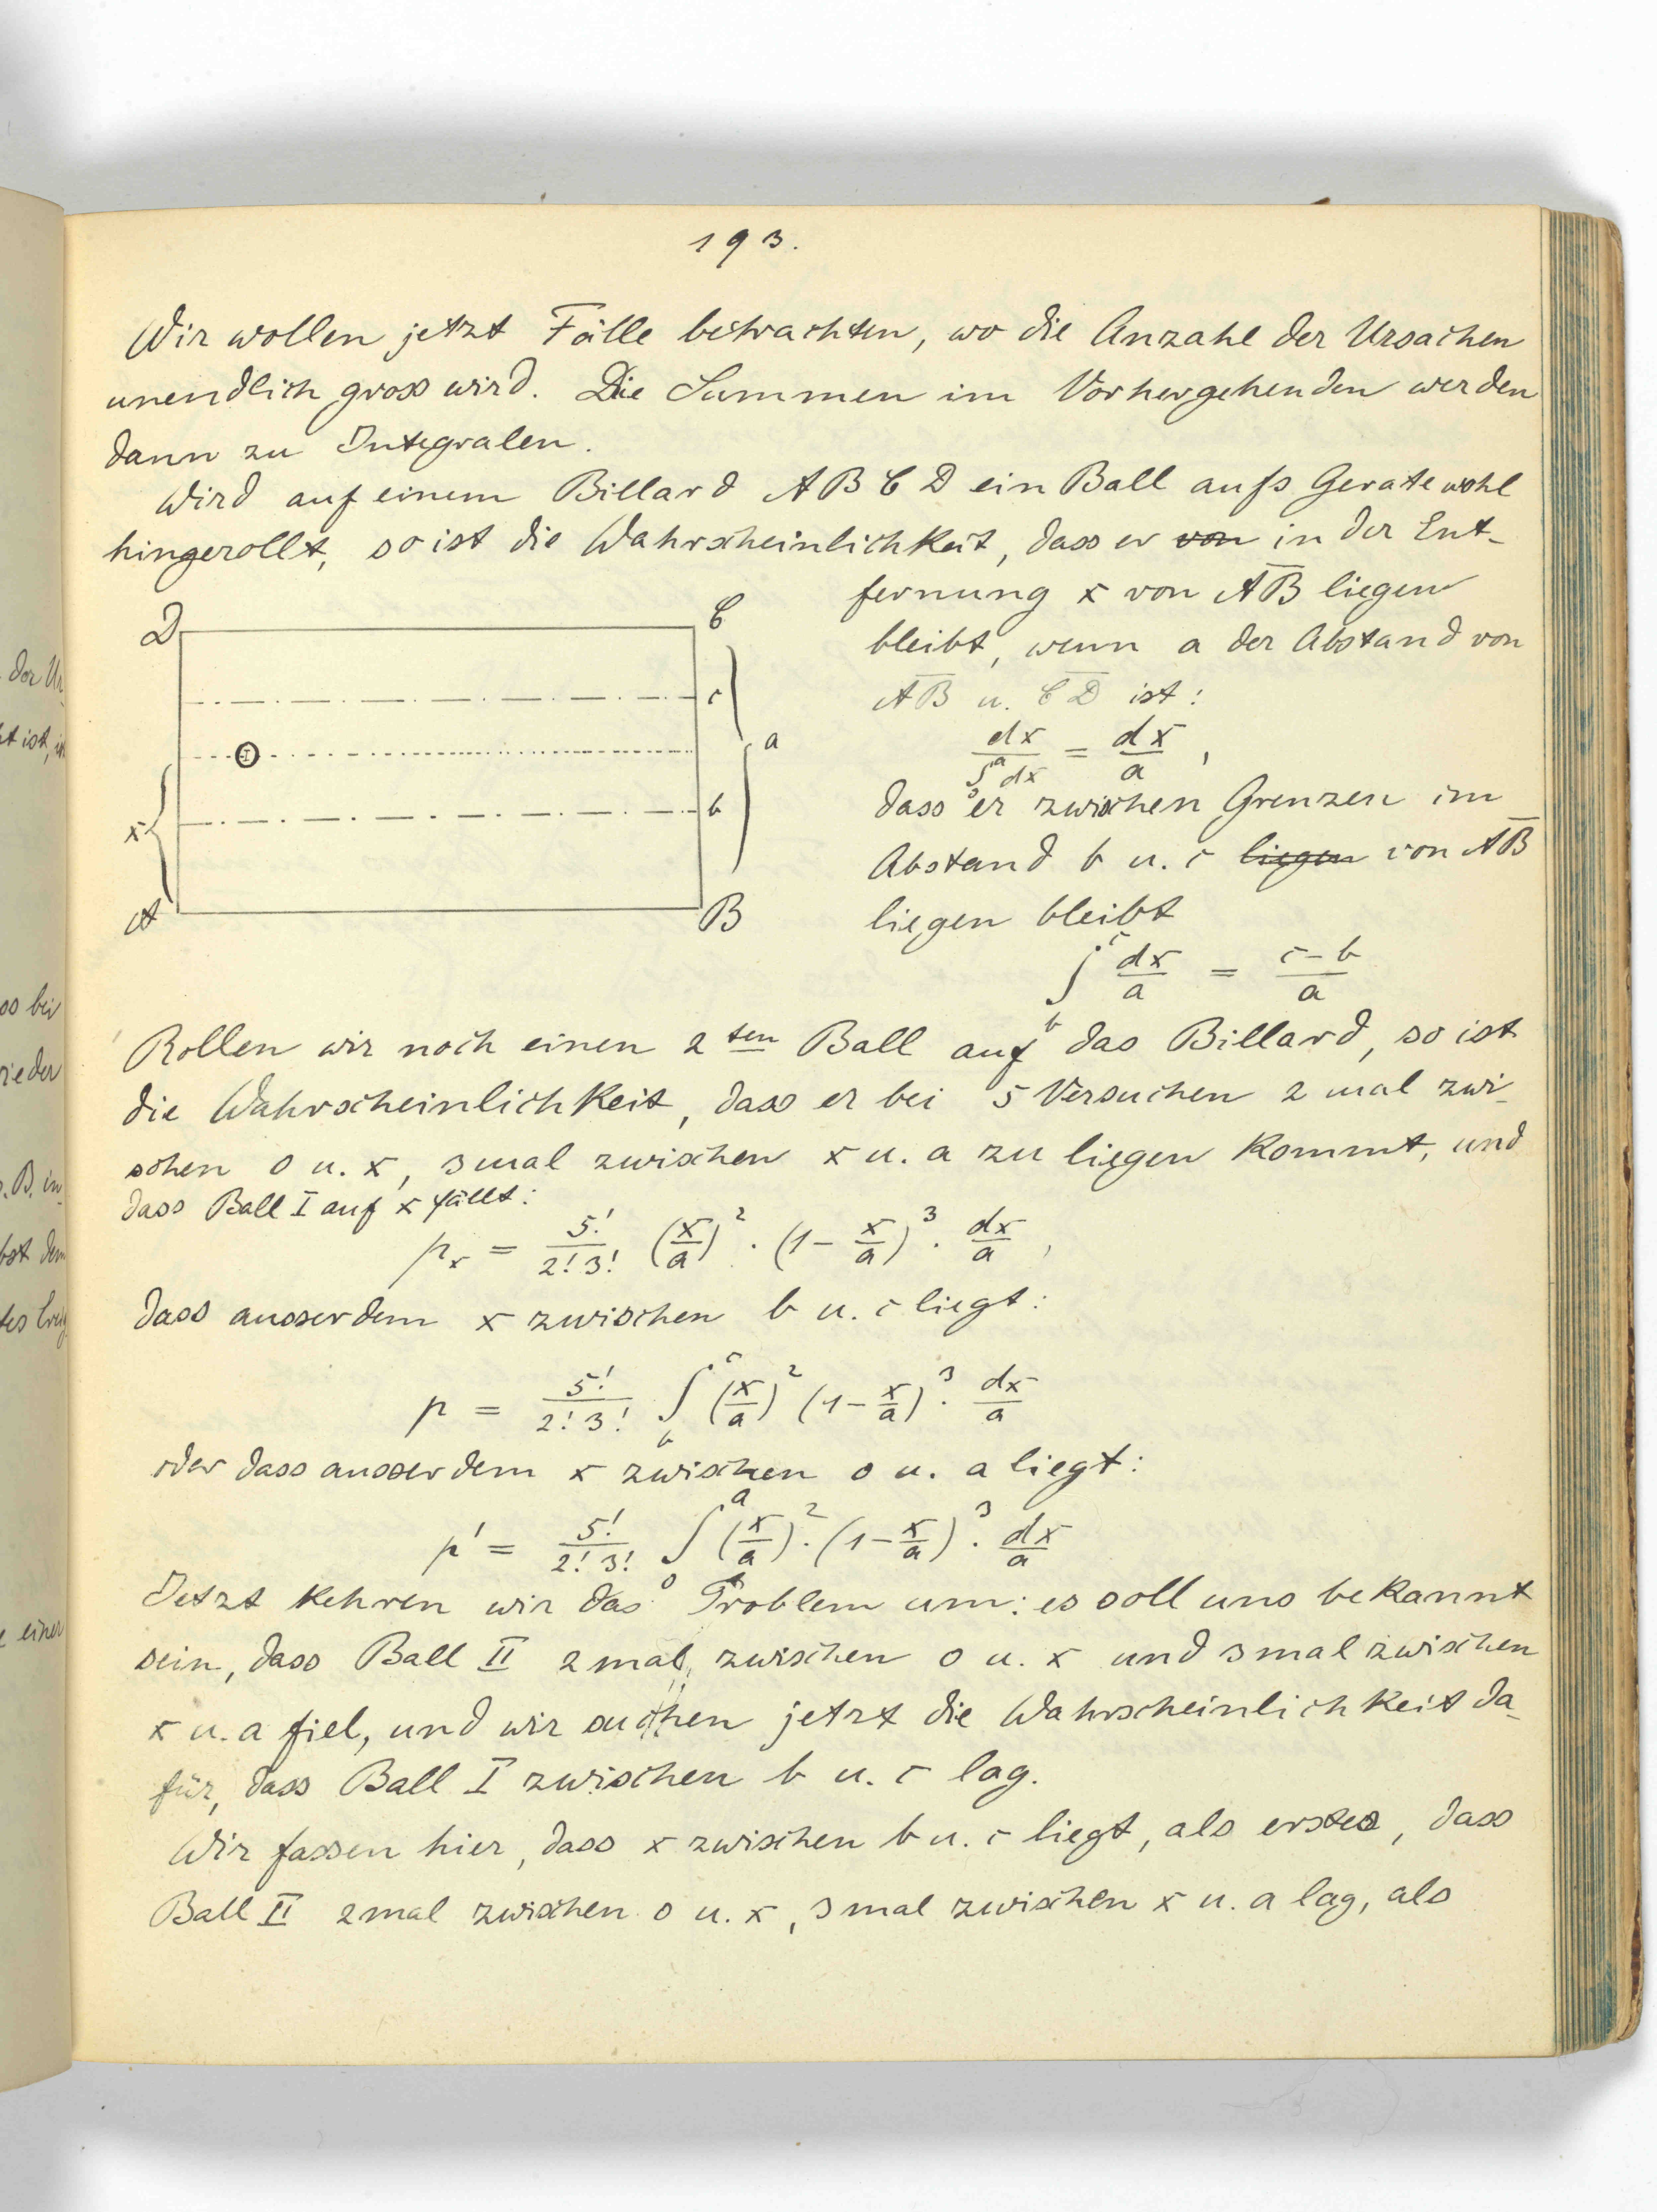 193.
Wir wollen jetzt Fälle betrachten, wo die Anzahl der Ursachen
unendlich gross wird. Die Summen im Vorhergehenden werden
dann zu Integralen.
Wird auf einem Billard ABCD ein Ball aufs Geratewohl
hingerollt, so ist die Wahrscheinlichkeit, dass er von in der Ent-
fernung x von A̅B̅ liegen
bleibt, wenn a der Abstand von
A̅B̅ u. C̅D̅ ist:
dx / ∫₀ᵃ dx = dx/a ,
dass er zwischen Grenzen im
Abstand b u. c liegen von A̅B̅
liegen bleibt
∫_b^c dx/a = (c-b)/a
D
C
c
I
a
b
x
A
B
Rollen wir noch einen 2ten Ball auf das Billard, so ist
die Wahrscheinlichkeit, dass er bei 5 Versuchen 2 mal zwi-
schen 0 u. x, 3mal zwischen x u. a zu liegen kommt, und
dass Ball I auf x fällt:
p_x = 5!/(2! 3!) (x/a)² · (1 - x/a)³ · dx/a ,
dass ausserdem x zwischen b u. c liegt:
p = 5!/(2! 3!) ∫_b^c (x/a)² (1 - x/a)³ · dx/a
oder dass ausserdem x zwischen 0 u. a liegt:
p' = 5!/(2! 3!) ∫_0^a (x/a)² · (1 - x/a)³ · dx/a
Jetzt kehren wir das Problem um: es soll uns bekannt
sein, dass Ball II 2mal zwischen 0 u. x und 3mal zwischen
x u. a fiel, und wir suchen jetzt die Wahrscheinlichkeit da-
für, dass Ball I zwischen b u. c lag.
Wir fassen hier, dass x zwischen b u. c liegt, als erstes, dass
Ball II 2mal zwischen 0 u. x, 3mal zwischen x u. a lag, als
der Ur-
ist, in
ss bei
ieder
B. in-
bst dem
einer